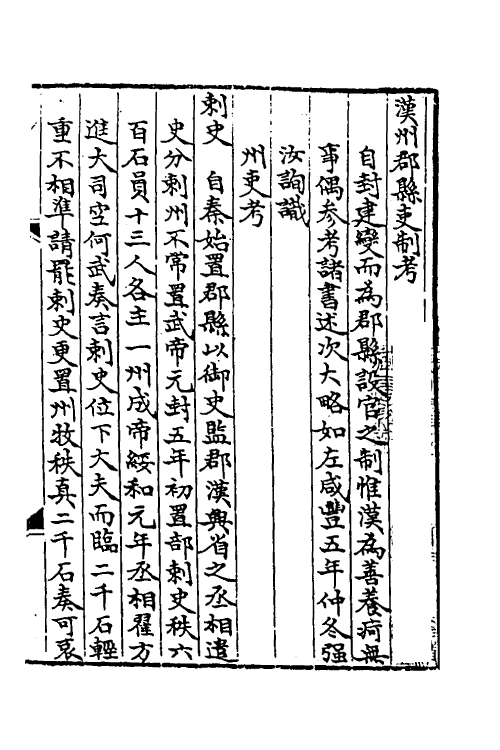 漢州郡縣吏制考
自封建變而為郡縣設官之制惟漢為善養疴無
事偶參考諸書述次大略如左咸豐五年仲冬强
汝詢識
州吏考
刺史　自秦始置郡縣以御史監郡漢興省之丞相遣
史分刺州不常置武帝元封五年初置部刺史秩六
百石員十三人各主一州成帝綏和元年丞相翟方
進大司空何武奏言刺史位下大夫而臨二千石輕
重不相準請罷刺史更置州牧秩真二千石奏可哀